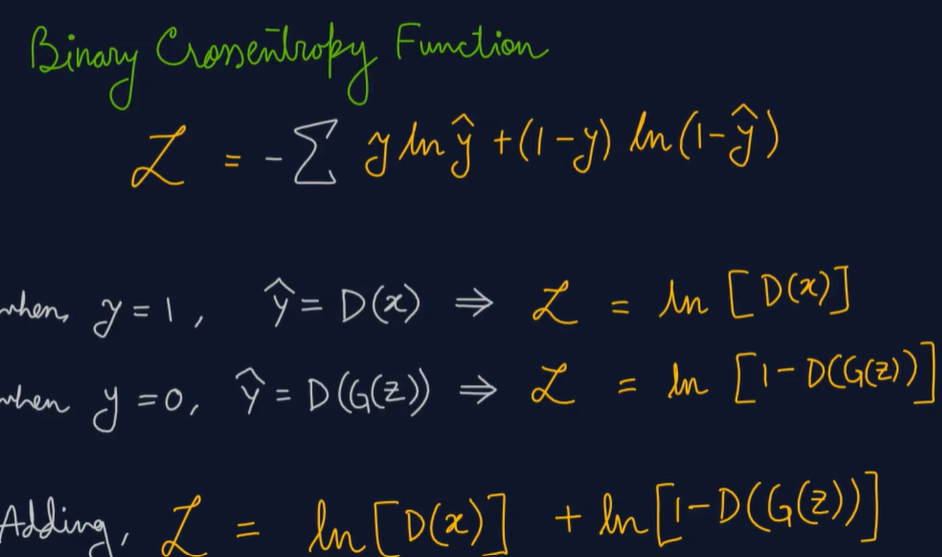 Binary Crossentropy Function
ℒ = -∑ y ln ŷ + (1-y) ln (1-ŷ)
when, y = 1, ŷ = D(x) ⇒ ℒ = ln [D(x)]
when y = 0, ŷ = D(G(z)) ⇒ ℒ = ln [1-D(G(z))]
Adding, ℒ = ln [D(x)] + ln [1-D(G(z))]